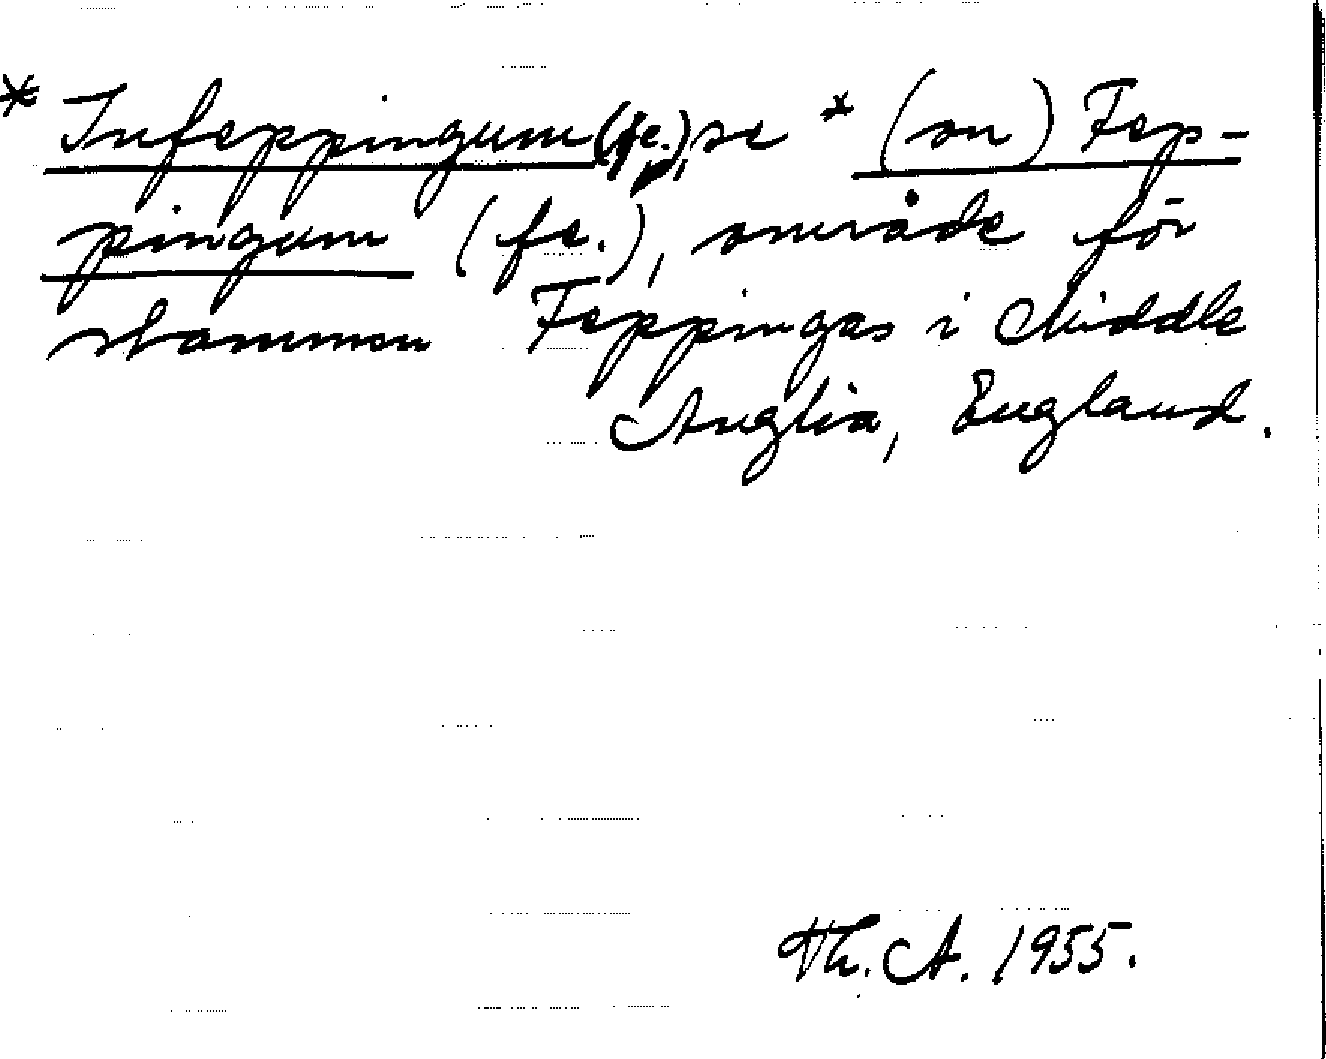 * Infeppingum (fe.), se * (on) Fep-
pingum (fe.), område för
stammen Feppingas i Middle
Anglia, England.
Th. A. 1955.